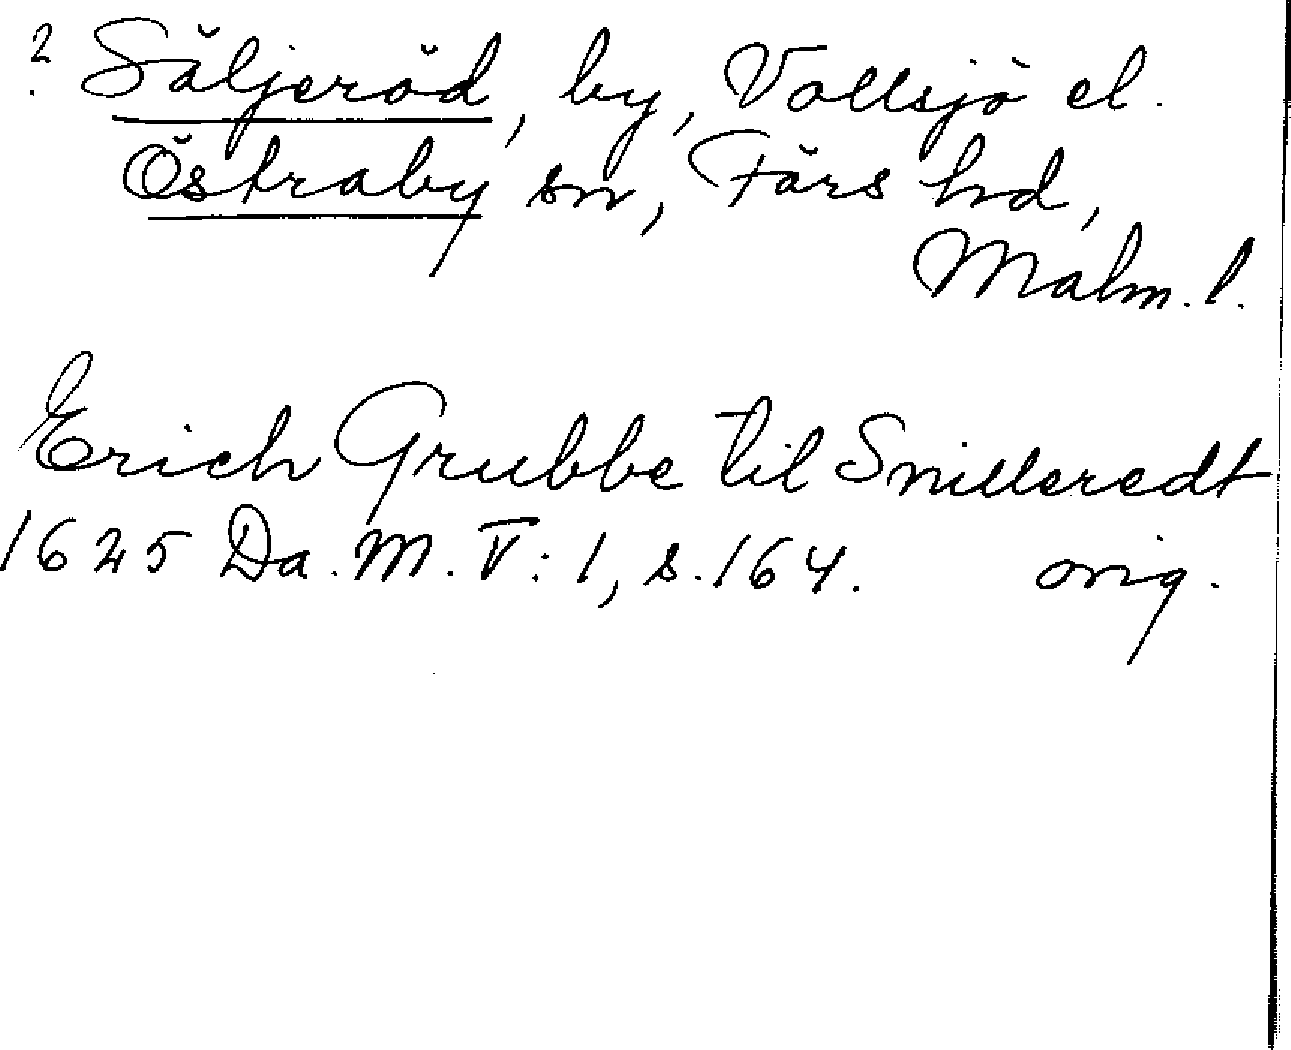 ? Säljeröd, by, Vollsjö el.
Östraby sn, Färs hd,
Malm. l.
Erich Grubbe til Snilleredt
1625 Da. M. V: 1, s. 164. orig.